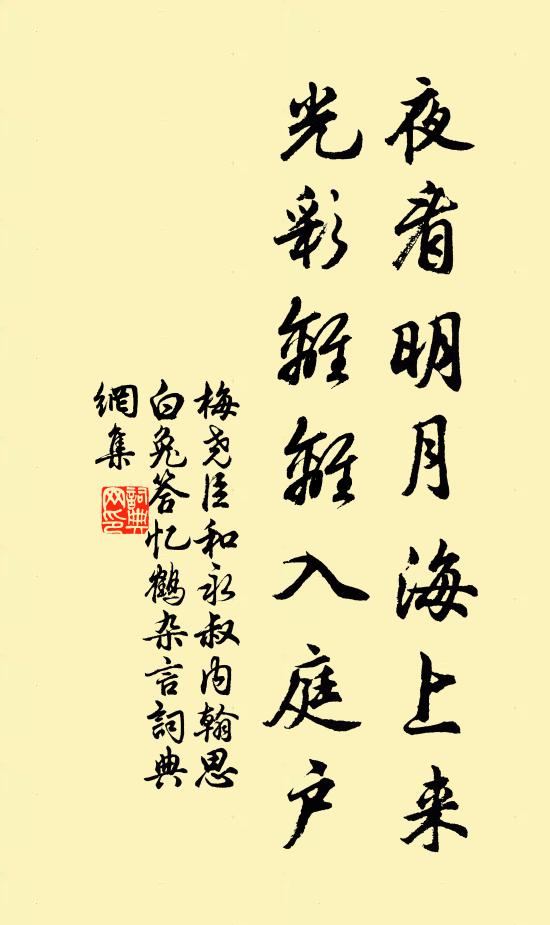 夜看明月海上来
光彩離離入庭户
梅尧臣和永叔内翰思
白兔答忆鶴杂言詞典
網集
詞典
网印